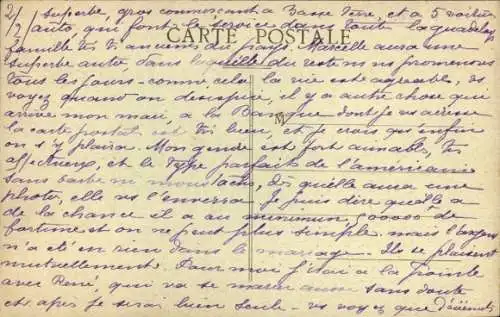 2/2 superbe, gros commerçant à Basse Terre, et a 5 voitures
auto, qui font le service dans toute la guadeloupe
CARTE POSTALE
famille très très ancienne du pays. Marcelle aura une
superbe auto dans laquelle du reste ns ns promenons
tous les jours - comme cela la vie est agréable, vs
voyez quand on désespère, il y a autre chose qui
arrive mon mari, a la Banque dont je vs adresse
la carte postale est très bien, et je crois qu'enfin
on s'y plaira. Mon gendre est fort aimable, très
affectueux, et le type parfait de l'américain
sans barbe ni moustache, dès qu'elle aura une
photo, elle vs l'enverra. Je puis dire qu'elle a
de la chance il a au minimum 500000 de
fortune et on ne peut plus simple. mais l'argent
n'a été en rien dans le mariage. Ils se plaisent
mutuellement. Pour moi j'étai à la Pointe
avec René, qui va se marier aussi sans doute
et après je serai bien seule - vs voyez que d'événements
M